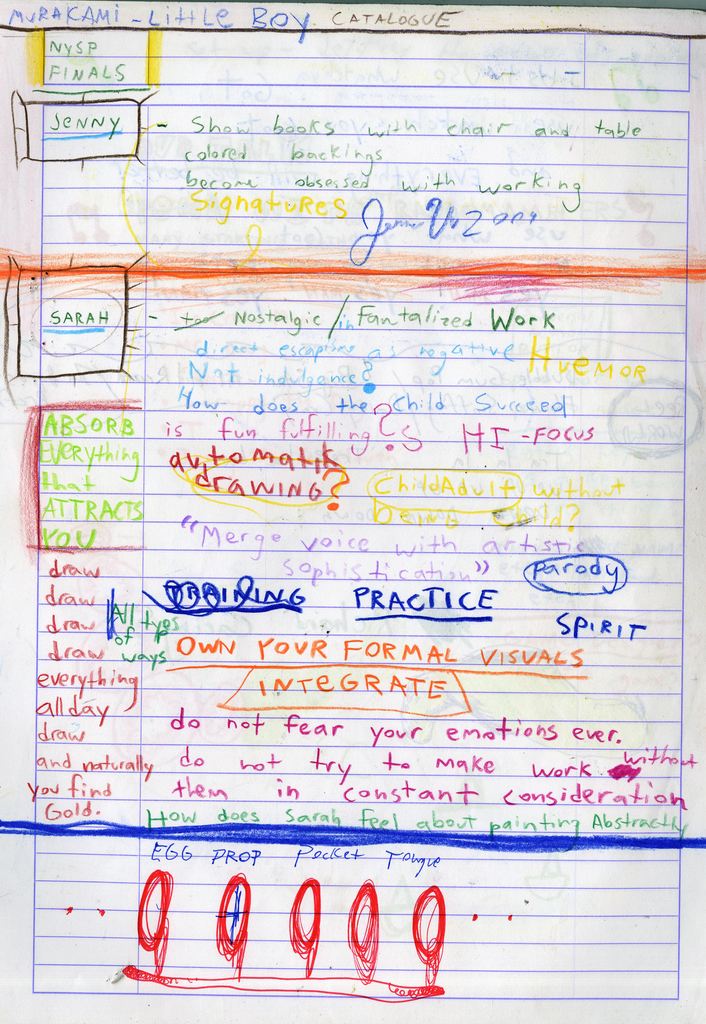 MURAKAMI - Little Boy CATALOGUE
NYSP
FINALS
JENNY
- Show books with chair and table
colored backings
become obsessed with working
Signatures
2004
SARAH
- too Nostalgic / in Fantalized Work
direct escaptism as negative HUEMOR
Not indulgence?
How does the Child Succeed
is fun fulfilling? HI-FOCUS
automatik
drawing?
ChildAdult without
being Child?
"Merge voice with artistic
Sophistication"
parody
ABSORB
EVERYthing
that
ATTRACTS
YOU
TRAINING PRACTICE
SPIRIT
draw
draw
draw
draw
everything
all day
draw
and naturally
you find
Gold.
All typs
of
ways
OWN YOUR FORMAL VISUALS
INTEGRATE
do not fear your emotions ever.
do not try to make work without
them in constant consideration
How does Sarah feel about painting Abstractly
EGG DROP Pocket Tongue